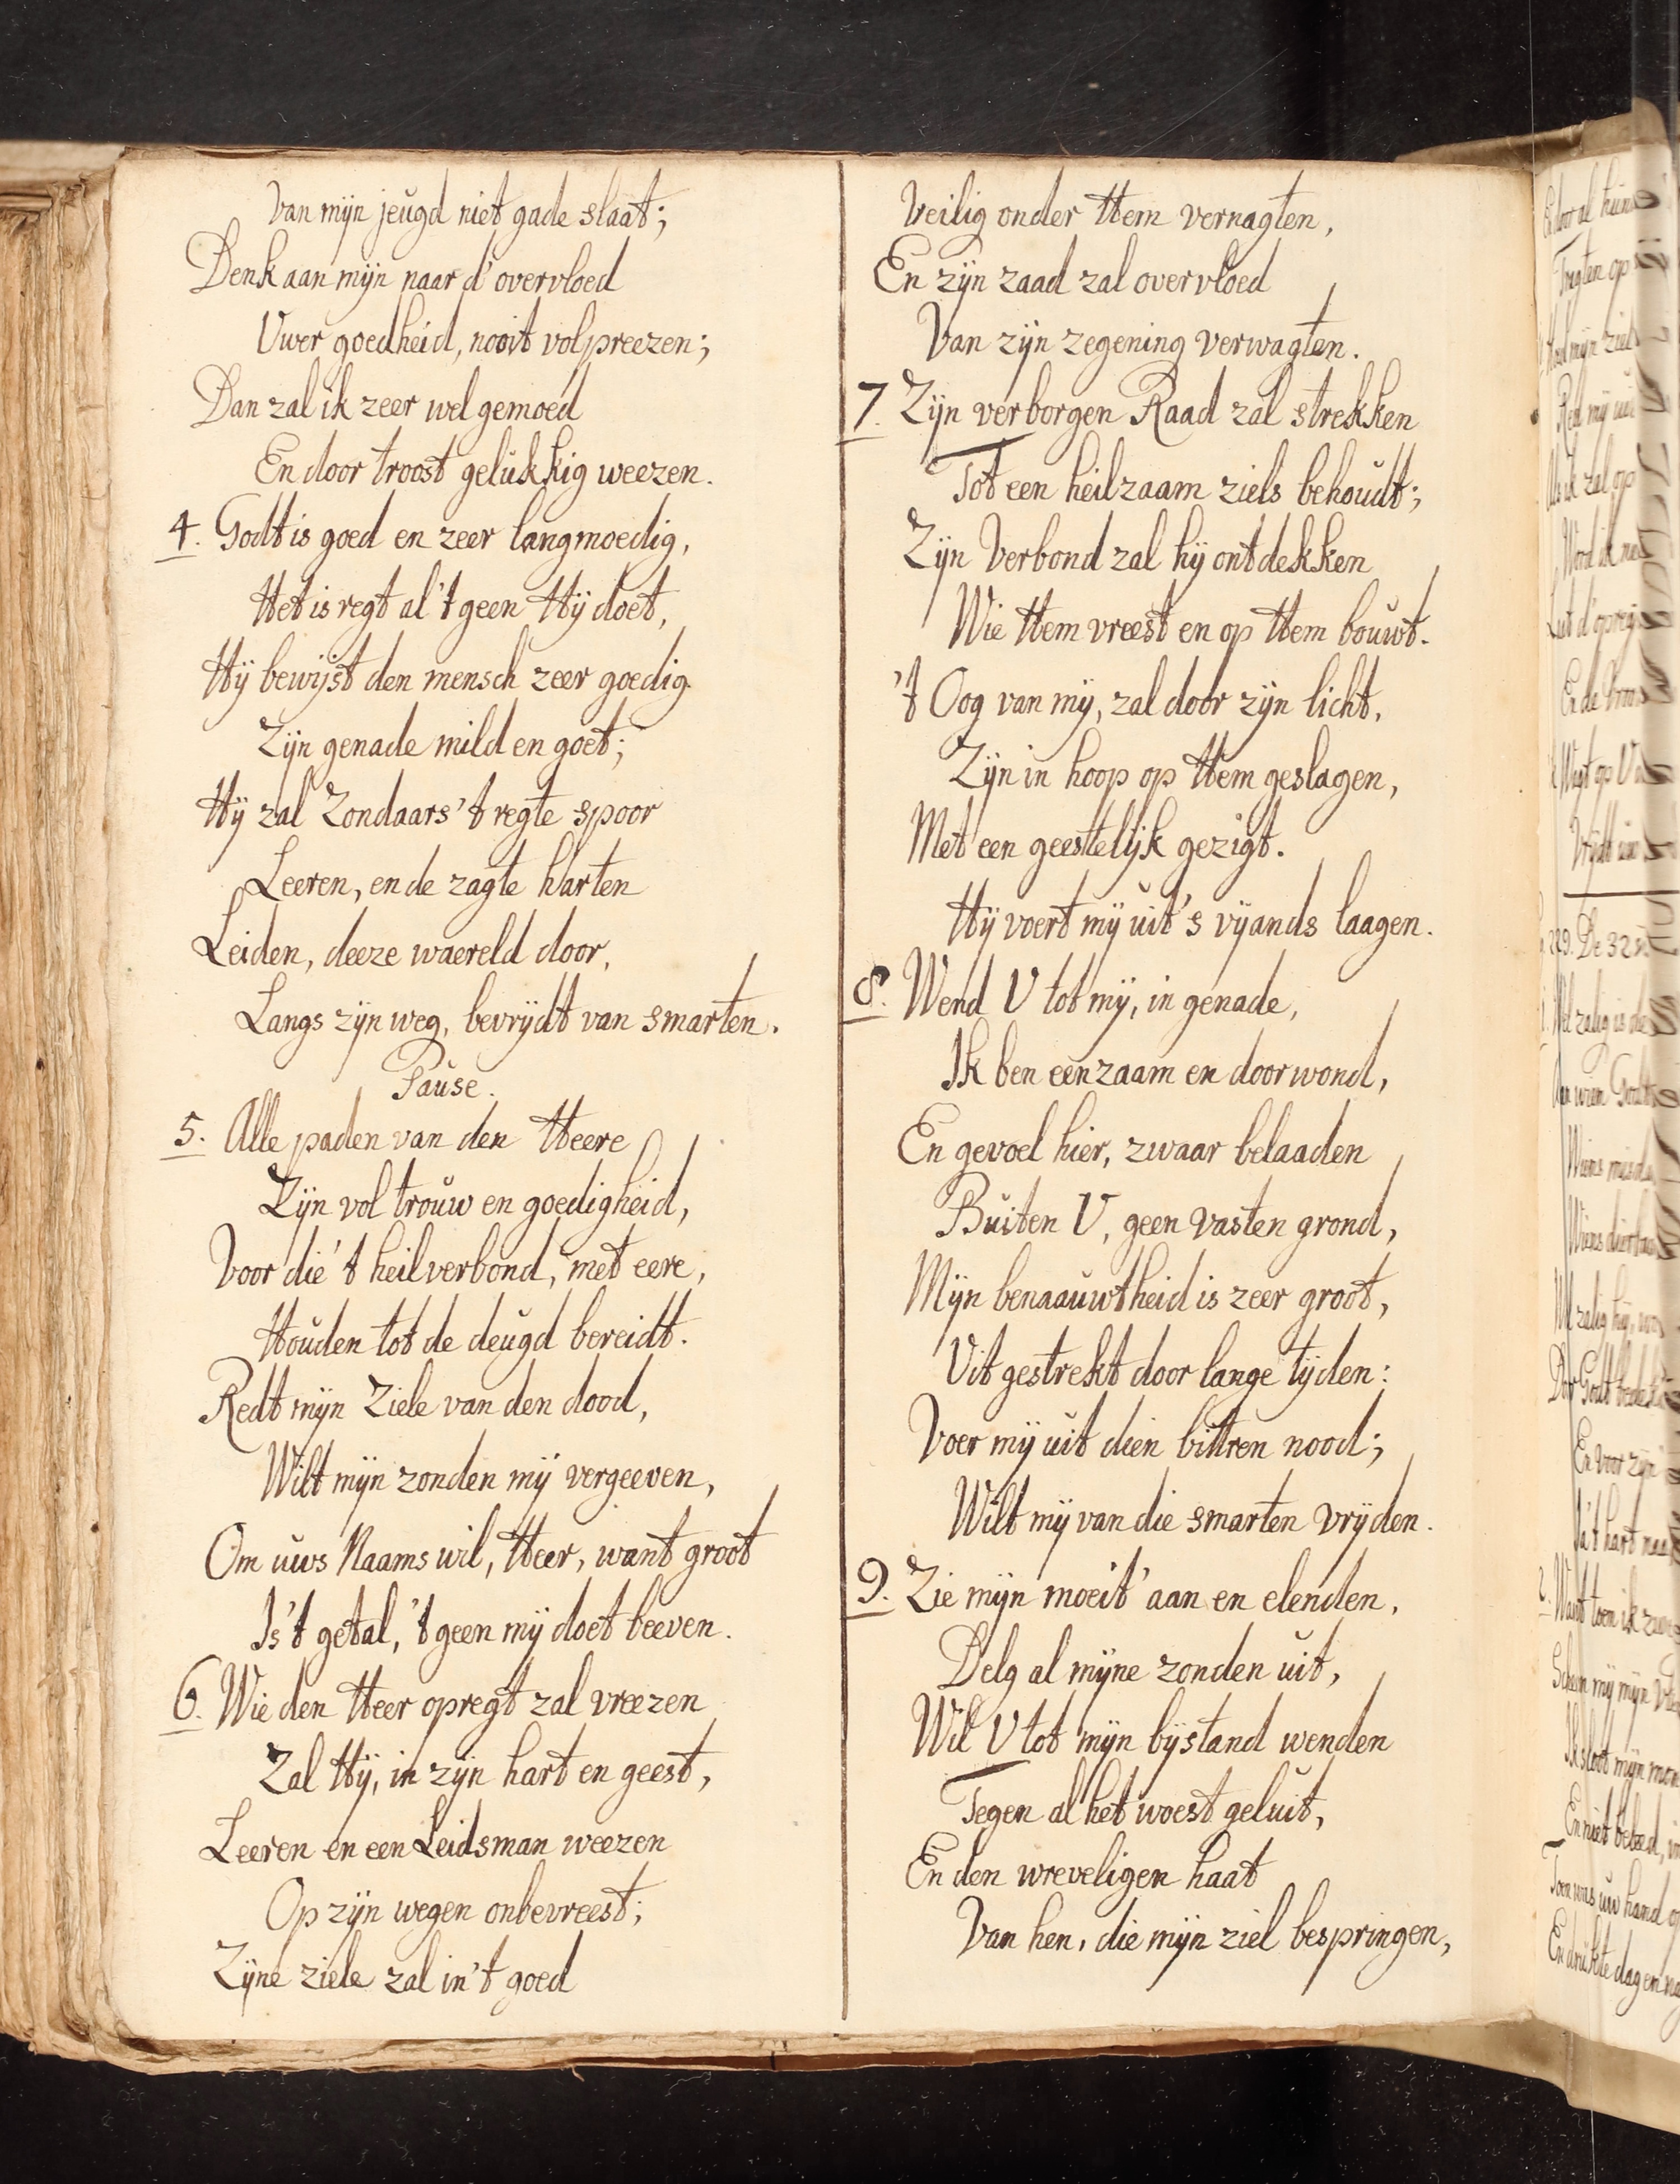 Van mijn jeugd niet gade slaat;
Denk aan mijn naar d'overvloed
Uwer goedheid, nooit volpreezen;
Dan zal ik zeer wel gemoed
En door troost gelukkig weezen.
4. Godt is goed en zeer langmoedig,
Het is regt al 't geen Hij doet,
Hij bewijst den mensch zeer goedig
Zijn genade mild en goet;
Hij zal Zondaars 't regte spoor
Leeren, en de zagte harten
Leiden, deeze waereld door,
Langs zijn weg, bevrijdt van smarten.
Pause.
5. Alle paden van den Heere
Zijn vol trouw en goedigheid,
Voor die 't heilverbond, met eere,
Houden tot de deugd bereidt.
Redt mijn Ziele van den dood,
Wilt mijn zonden mij vergeeven,
Om uws Naams wil, Heer, want groot
Is 't getal, 't geen mij doet beeven.
6. Wie den Heer opregt zal vreezen
Zal Hij, in zijn hart en geest,
Leeren en een Leidsman weezen
Op zijn wegen onbevreest;
Zijne ziele zal in 't goed
Veilig onder Hem vernagten,
En zijn zaad zal overvloed
Van zijn zegening verwagten.
7. Zijn verborgen Raad zal strekken
Tot een heilzaam ziels behoudt;
Zijn Verbond zal hij ontdekken
Wie Hem vreest en op Hem bouwt.
't Oog van mij, zal door zijn licht,
Zijn in hoop op Hem geslagen,
Met een geestelijk gezigt.
Hij voert mij uit 's vijands laagen.
8. Wend U tot mij, in genade,
Ik ben eenzaam en doorwond,
En gevoel hier, zwaar belaaden
Buiten U, geen vasten grond,
Mijn benaauwtheid is zeer groot,
Uit gestrekt door lange tijden:
Voer mij uit dien bittren nood;
Wilt mij van die smarten vrijden.
9. Zie mijn moeit' aan en elenden,
Delg al mijne zonden uit,
Wil U tot mijn bijstand wenden
Tegen al het woest geluit,
En den wreveligen haat
Van hen, die mijn ziel bespringen,